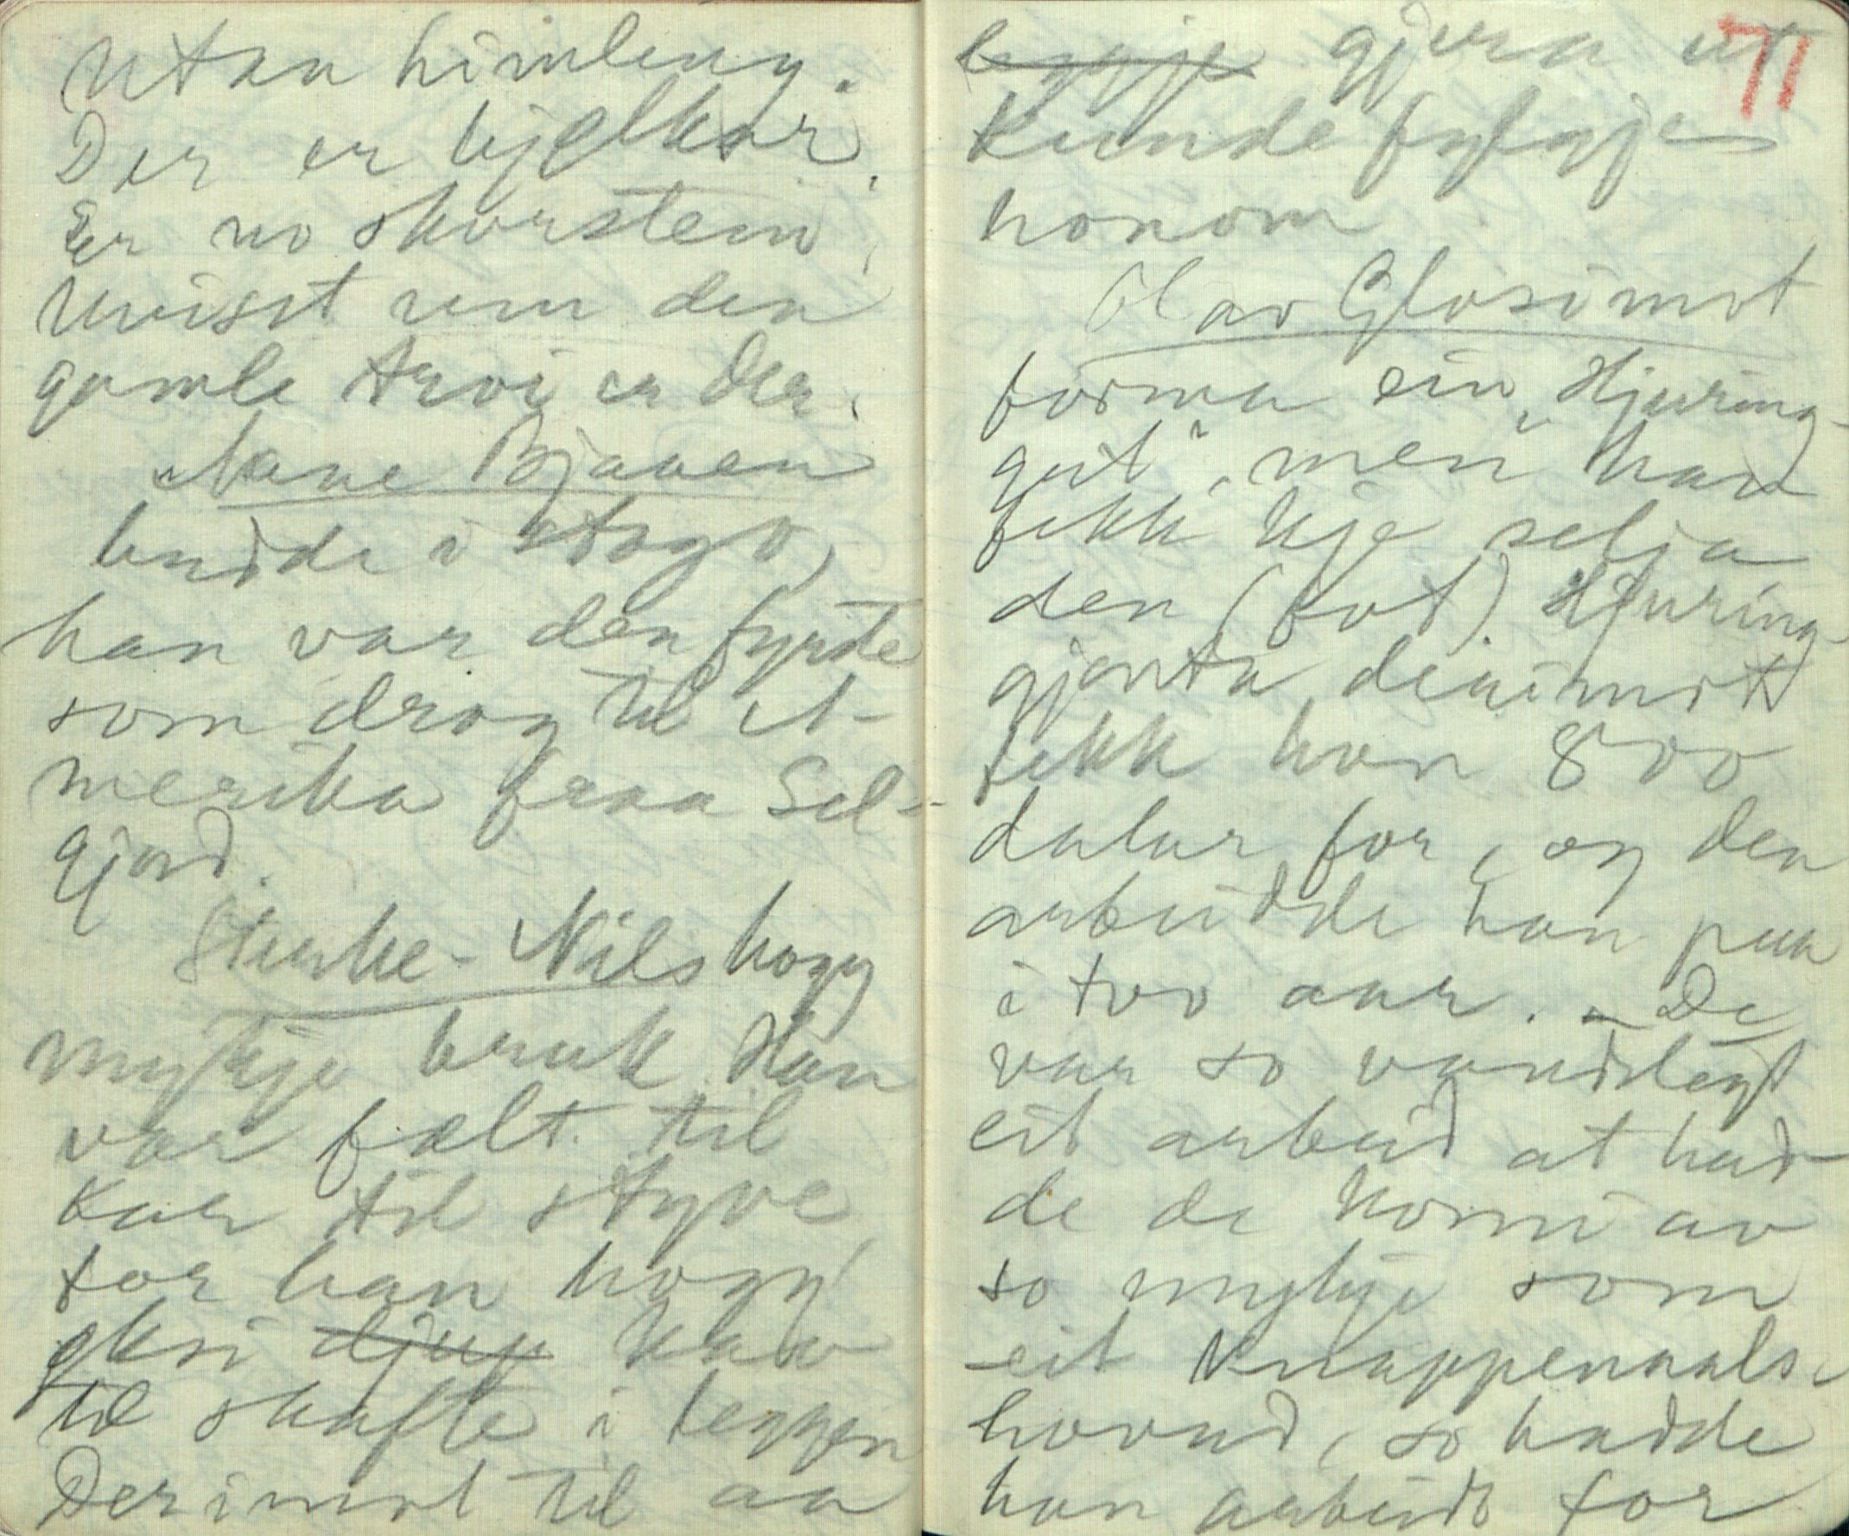 utan himling.
Der er bjelkar.
Er no skorstein,
uvisst um den
gamle trvi er der.
Aane Bjaaen
budde i stogo,
han var den fyrste
som drog til A-
merika fraa Sel-
gjord.
Sterke-Nils hogg
mykje bruk. Han
var fælt til
kar til styve,
for han hogg
øksi djup kav
til skafte i leggen
Derimot til aa
leggje gjera ut
71
kunde fylgje
honom
Olav Glosimot
forma ein "Hjuring-
gut", men han
fekk kje selja
den (fot). Hjuring-
gjenta derimot
fekk han 800
dalar for, og den
arbeidde han paa
i tvo aar. - De
var so vandslegt
eit arbeid at had-
de de komi av
so mykje som
eit knappenaals-
hovud, so hadde
han arbeidt for